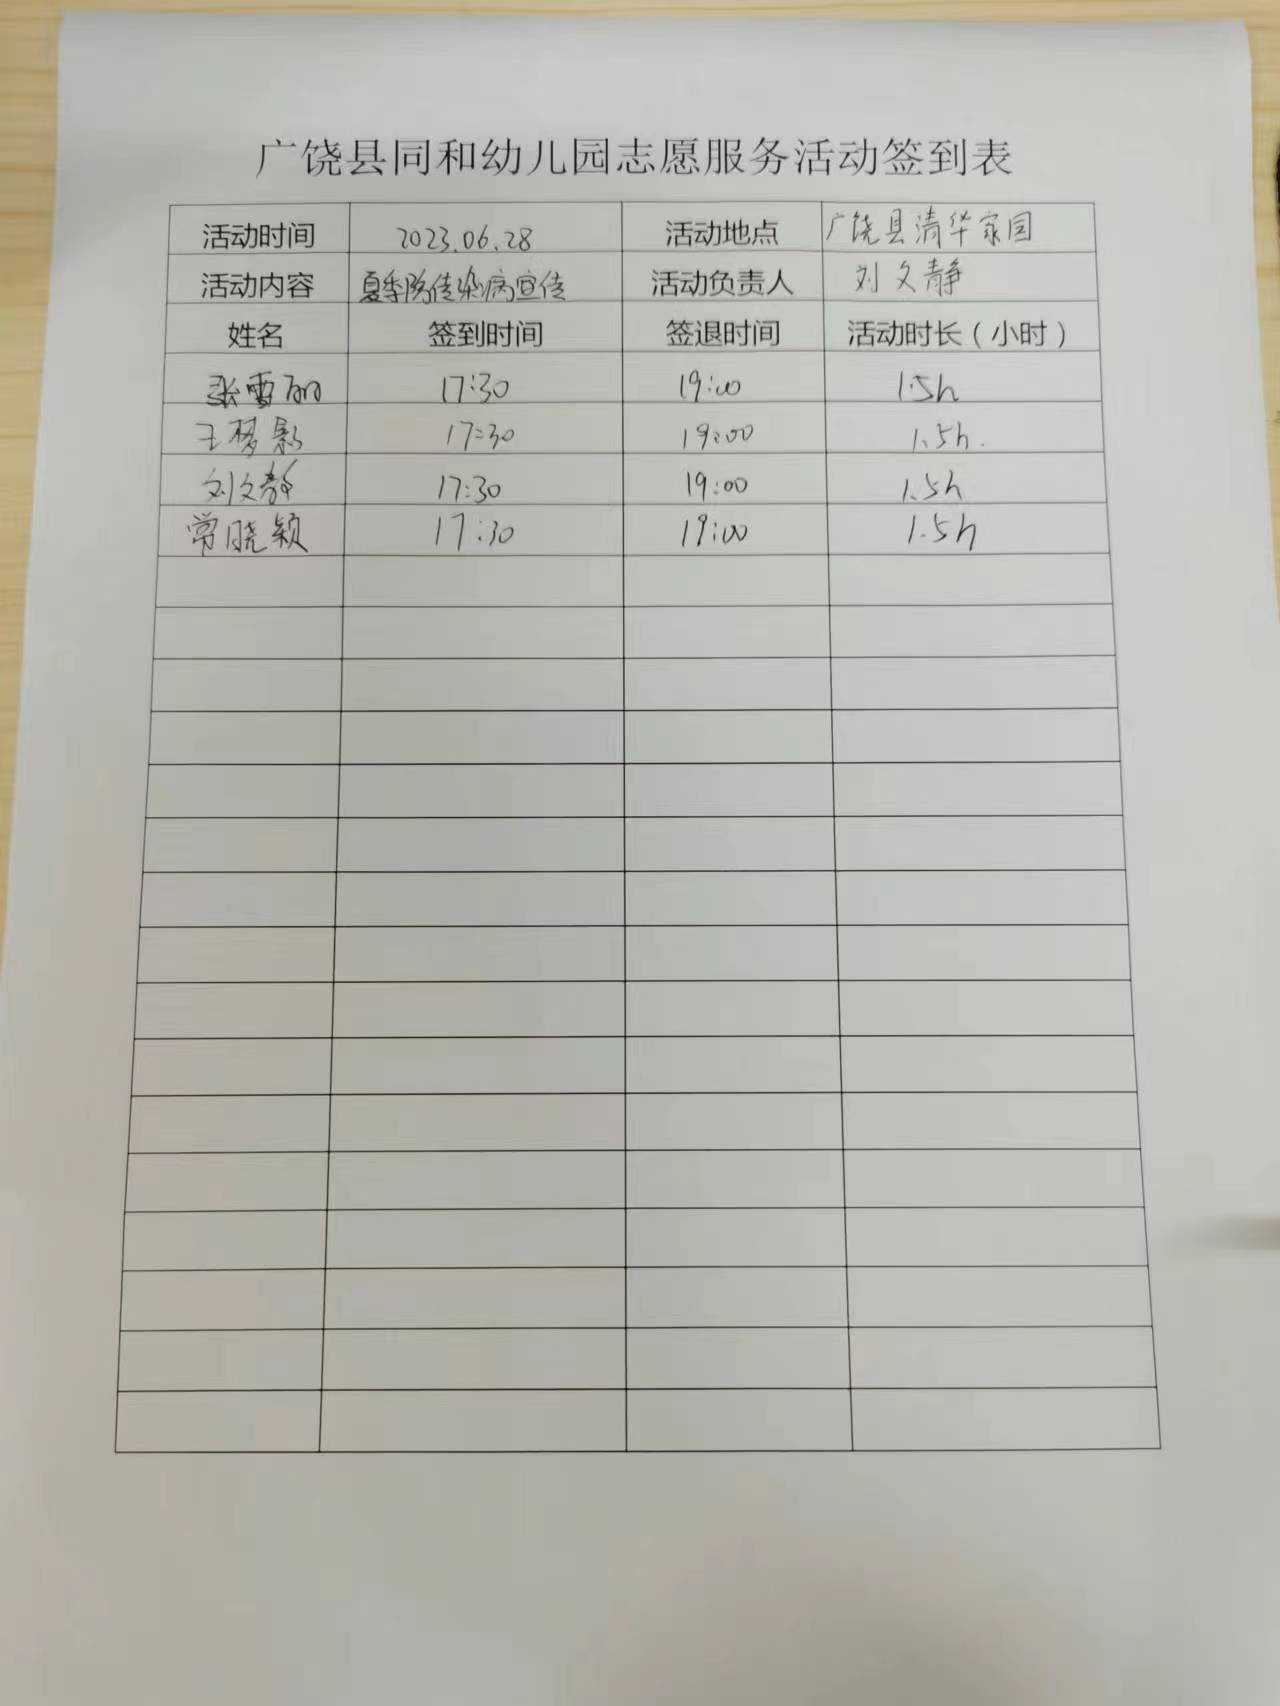 广饶县同和幼儿园志愿服务活动签到表
活动时间 2023.06.28 活动地点 广饶县清华家园
活动内容 夏季防传染病宣传 活动负责人 刘文静
姓名 签到时间 签退时间 活动时长（小时）
张雪丽 17:30 19:00 1.5h
王梦影 17:30 19:00 1.5h.
刘文静 17:30 19:00 1.5h
常晓颖 17:30 19:00 1.5h